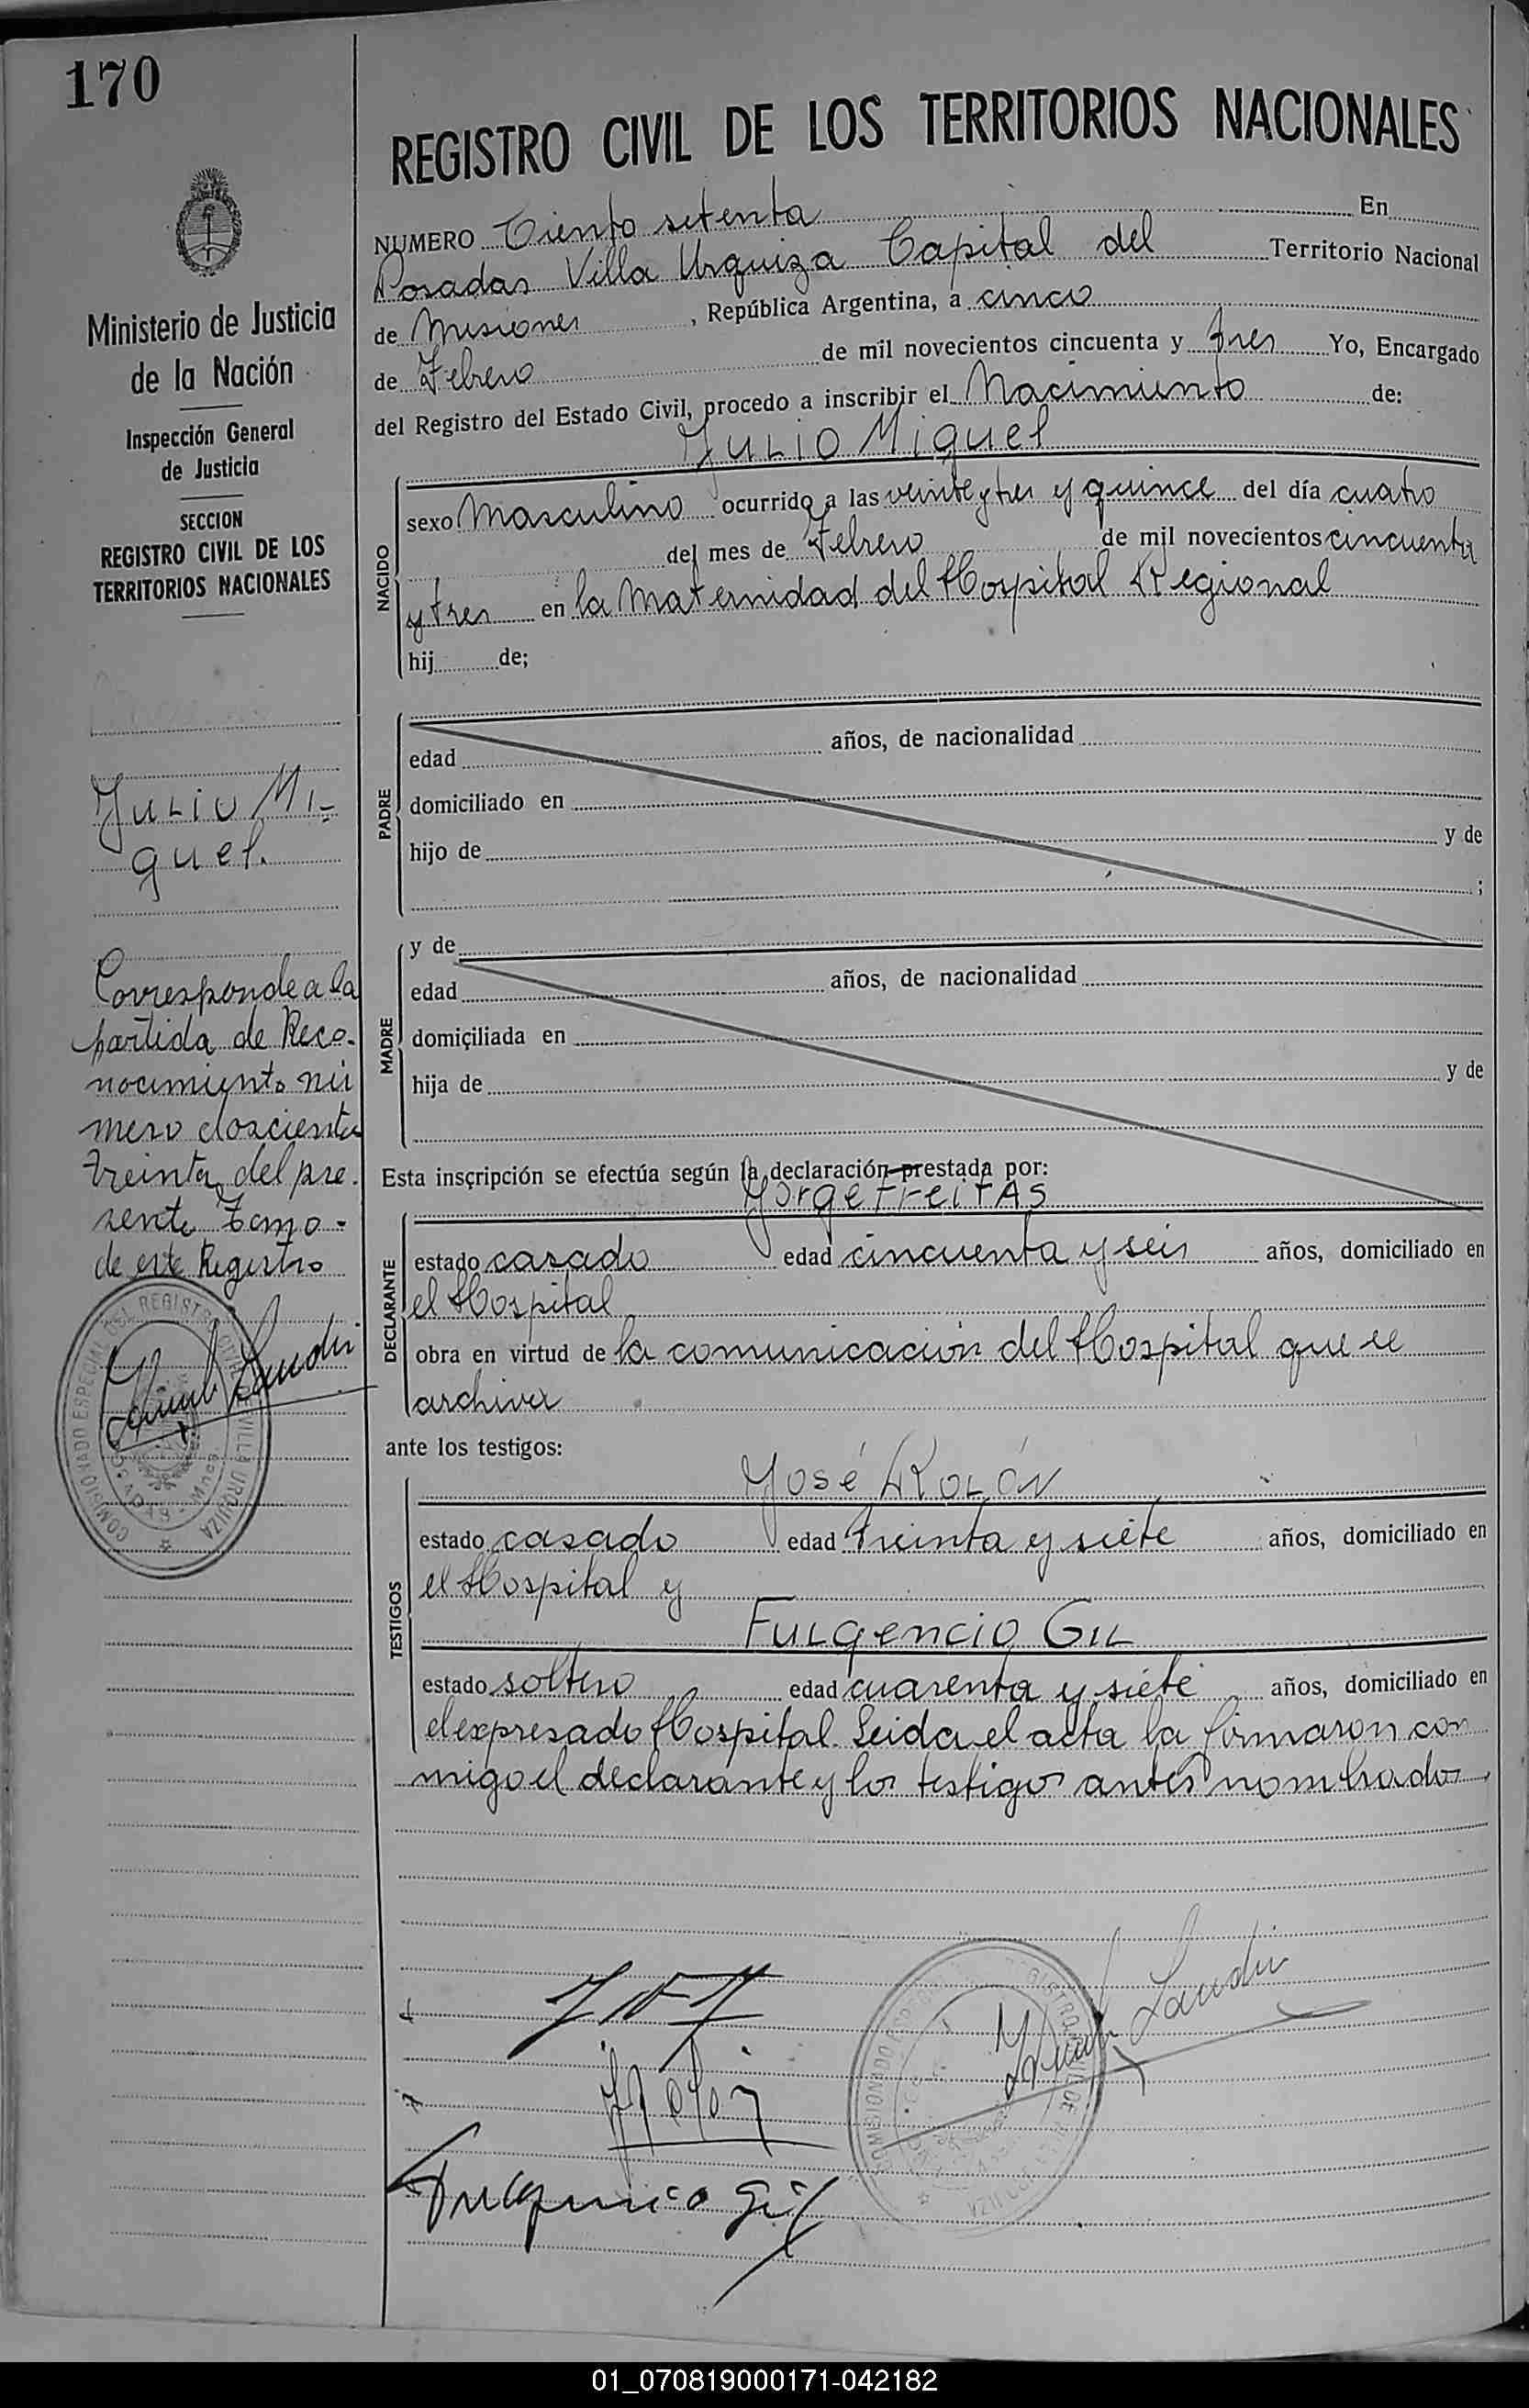 170
Ministerio de Justicia
de la Nación
Inspección General
de Justicia
SECCION
REGISTRO CIVIL DE LOS
TERRITORIOS NACIONALES
Julio Mi-
guel.
Corresponde a la
partida de Reco-
nocimiento nú
mero doscienta
treinta del pre-
sente tomo -
de este Registro
COMISIONADO ESPECIAL DEL REGISTRO CIVIL VILLA URQUIZA
REGISTRO CIVIL DE LOS TERRITORIOS NACIONALES
NUMERO Ciento setenta En
Posadas Villa Urquiza Capital del Territorio Nacional
de Misiones, República Argentina, a cinco
de Febrero de mil novecientos cincuenta y tres Yo, Encargado
del Registro del Estado Civil, procedo a inscribir el Nacimiento de:
Julio Miguel
NACIDO
sexo Masculino ocurrido a las veinte y tres y quince del día cuatro
del mes de Febrero de mil novecientos cincuenta
y tres en la Maternidad del Hospital Regional
hij de;
PADRE
edad años, de nacionalidad
domiciliado en
hijo de y de
;
MADRE
y de
edad años, de nacionalidad
domiciliada en
hija de y de
Esta inscripción se efectúa según la declaración prestada por:
Jorge Freitas
DECLARANTE
estado casado edad cincuenta y seis años, domiciliado en
el Hospital
obra en virtud de la comunicación del Hospital que se
archiva
ante los testigos:
José Rolón
TESTIGOS
estado casado edad treinta y siete años, domiciliado en
el Hospital y
Fulgencio Gil
estado soltero edad cuarenta y siete años, domiciliado en
el expresado Hospital Leida el acta la firmaron con
migo el declarante y los testigos antes nombrados
Fulgencio Gil
01_070819000171-042182